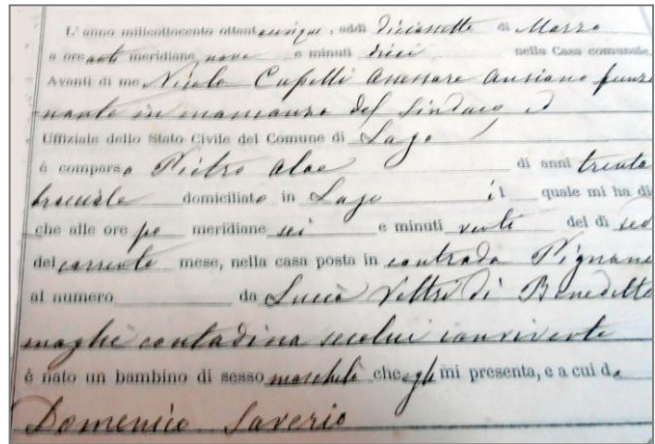 L'anno milleottocento ottantacinque, addì diciassette di Marzo
a ore anti meridiane nove e minuti dieci nella Casa comunale.
Avanti di me Nicola Cupelli Assessore Anziano funzio
nante in mancanza del Sindaco ed
Uffiziale dello Stato Civile del Comune di Lago
è comparso Pietro Aloe di anni trenta
bracciale domiciliato in Lago il quale mi ha di
che alle ore po meridiane sei e minuti venti del dì
del corrente mese, nella casa posta in contrada Pignano
al numero da Lucia Veltri di Benedetto
moglie contadina seco lui convivente
è nato un bambino di sesso maschile che egli mi presenta, e a cui dà
Domenico Saverio